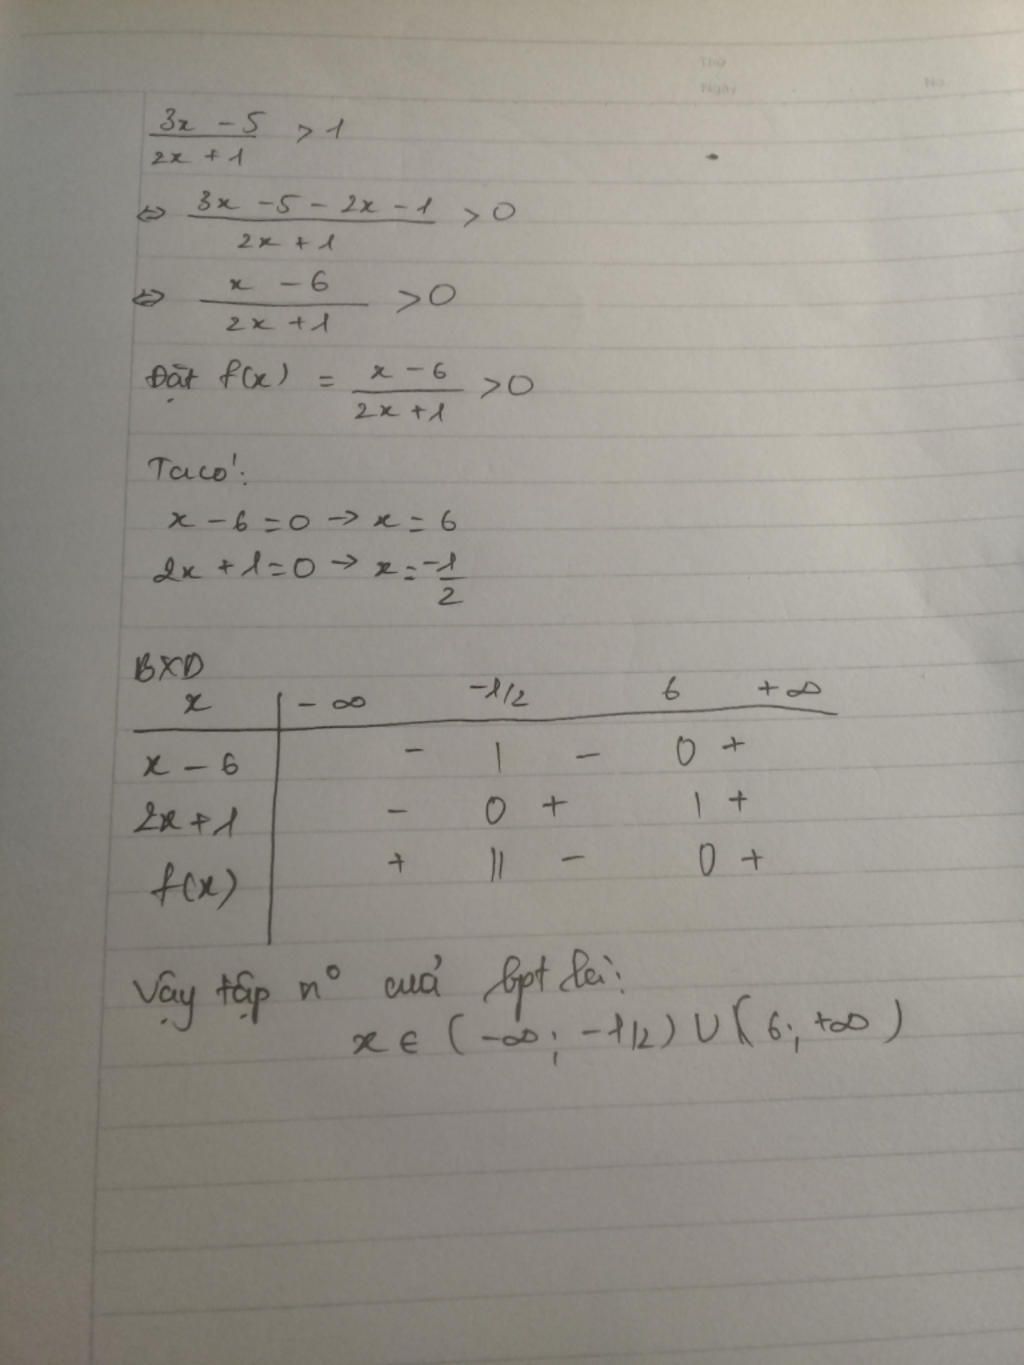 Thứ
Ngày No.
3x - 5 / 2x + 1 > 1
⇔ 3x - 5 - 2x - 1 / 2x + 1 > 0
⇔ x - 6 / 2x + 1 > 0
Đặt f(x) = x - 6 / 2x + 1 > 0
Ta có:
x - 6 = 0 → x = 6
2x + 1 = 0 → x = -1/2
BXD
x | -∞ -1/2 6 +∞
x - 6 | - | - 0 +
2x + 1 | - 0 + | +
f(x) | + || - 0 +
Vậy tập n° cuả bpt là:
x ∈ (-∞; -1/2) ∪ (6; +∞)